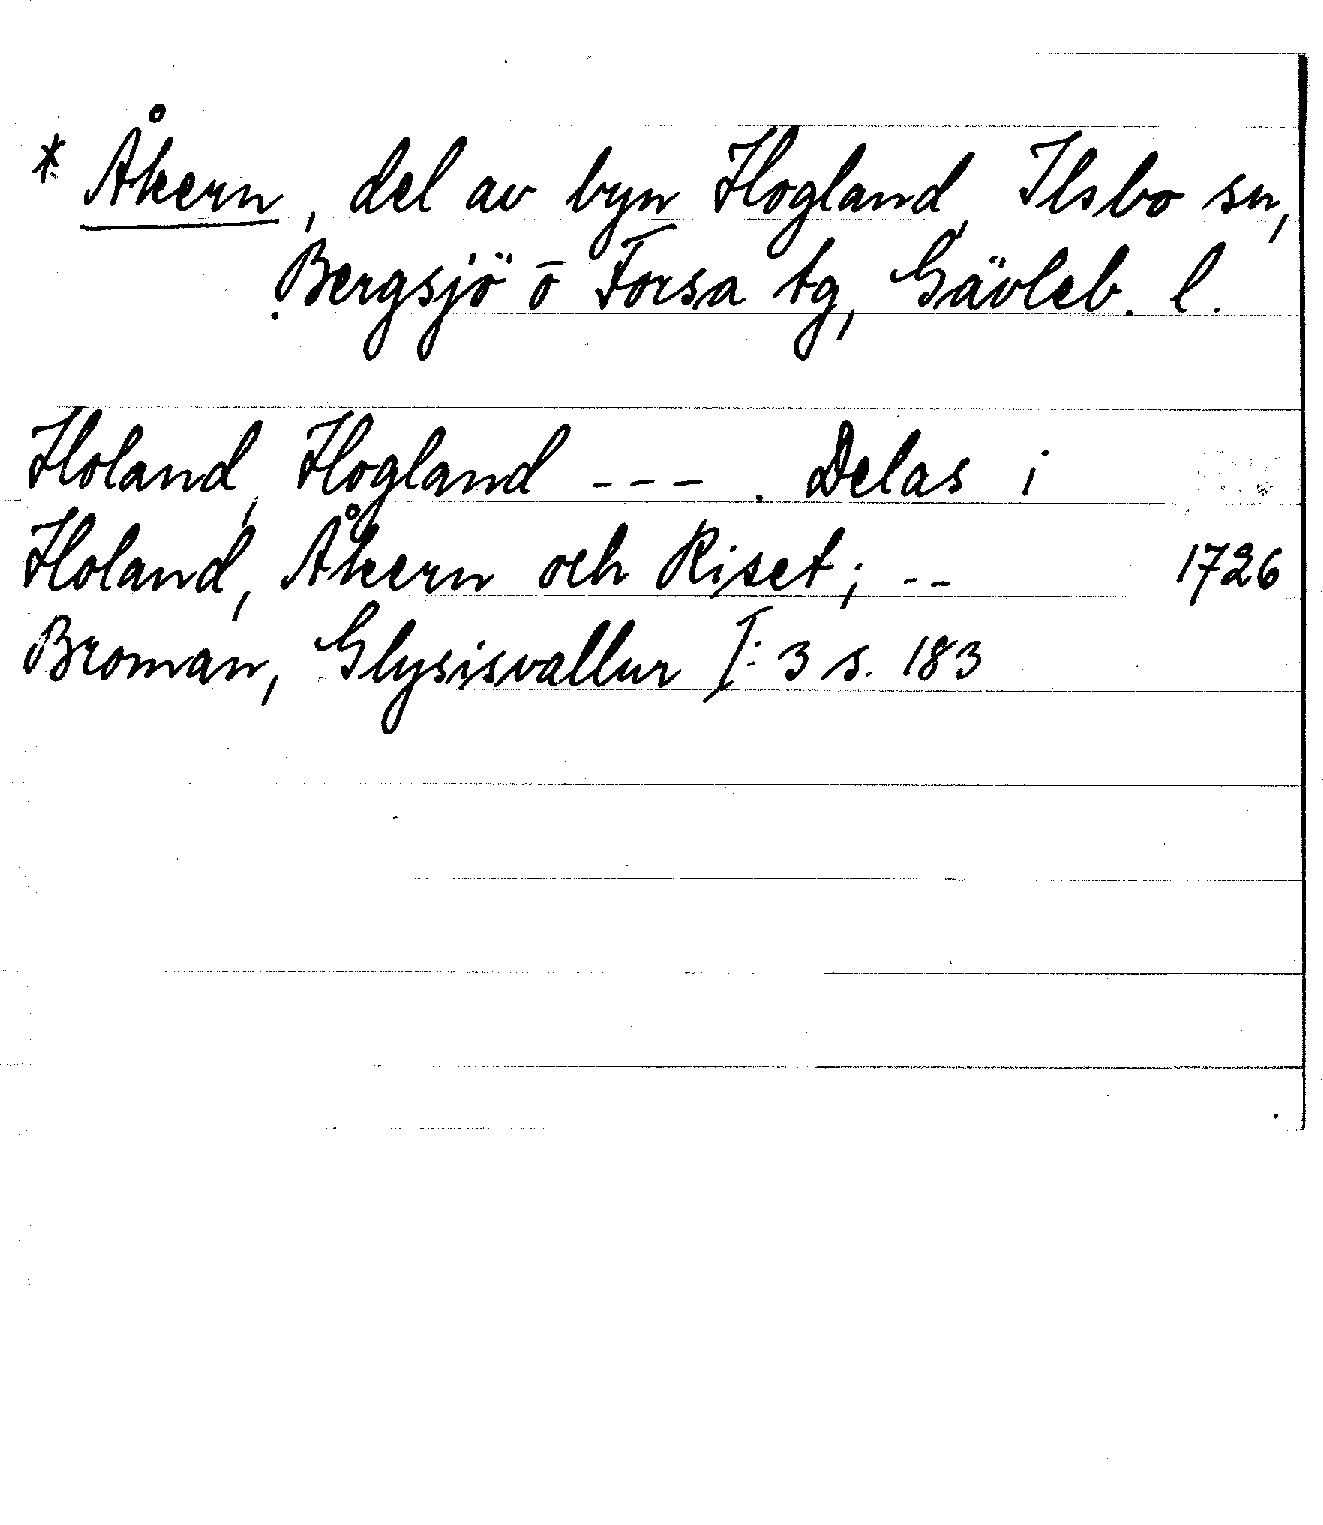 * Åkern, del av byn Hogland, Ilsbo sn,
Bergsjö o Forsa tg, Gävleb. l.
Holand, Hogland --- . Delas i
Holand, Åkern och Riset; -- 1726
Broman, Glysisvallur I:3 s. 183